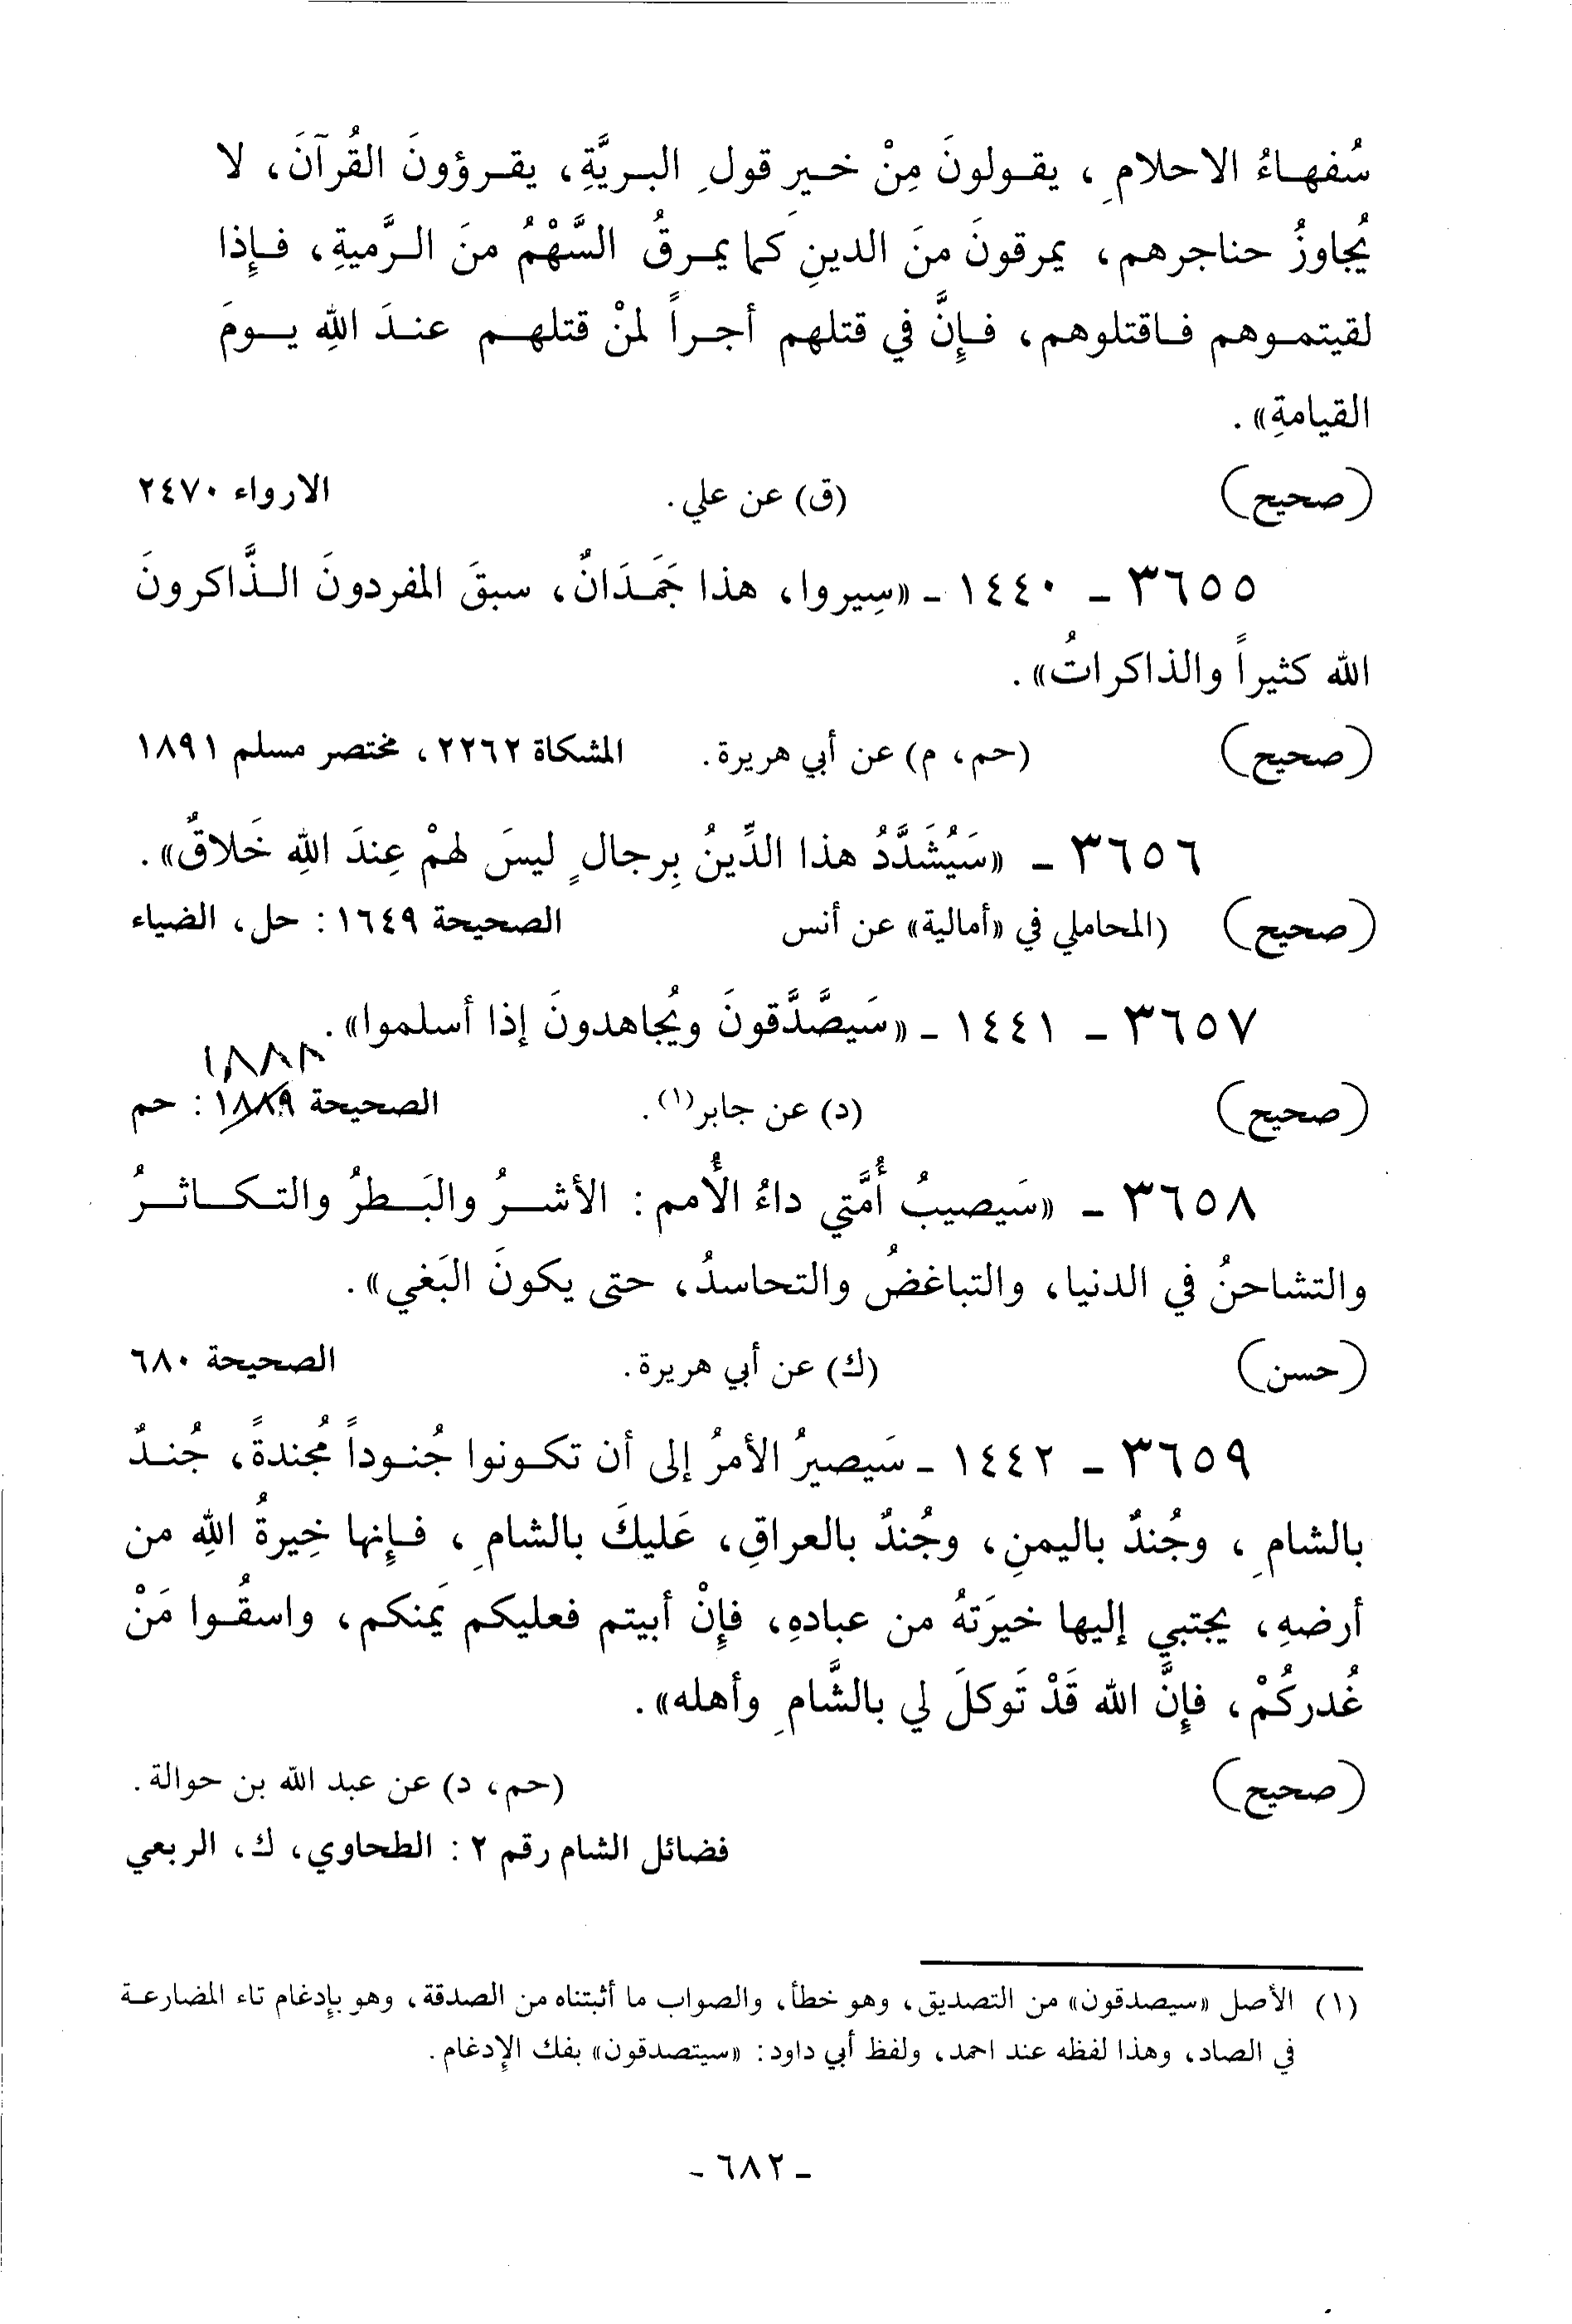 سُفهاءُ الاحلامِ، يقولونَ مِنْ خيرِ قولِ البريَّةِ، يقرؤونَ القُرآنَ، لا
يُجاوزُ حناجرهم، يمرقونَ منَ الدينِ كَما يمرقُ السَّهْمُ منَ الرَّميةِ، فإِذا
لقيتموهم فاقتلوهم، فإِنَّ في قتلهم أجراً لمنْ قتلهم عندَ اللهِ يومَ
القيامةِ».
(صحيح) (ق) عن علي. الارواء ٢٤٧٠
٣٦٥٥ - ١٤٤٠ - «سِيروا، هذا جَمَدَانٌ، سبقَ المفردونَ الذَّاكرونَ
الله كثيراً والذاكراتُ».
(صحيح) (حم، م) عن أبي هريرة. المشكاة ٢٢٦٢، مختصر مسلم ١٨٩١
٣٦٥٦ - «سَيُشَدَّدُ هذا الدِّينُ بِرجالٍ ليسَ لهمْ عِندَ اللهِ خَلاقٌ».
(صحيح) (المحاملي في «أمالية» عن أنس الصحيحة ١٦٤٩: حل، الضياء
٣٦٥٧ - ١٤٤١ - «سَيصَّدَّقونَ ويُجاهدونَ إذا أسلموا».
١٨٨٨
(صحيح) (د) عن جابر(١). الصحيحة ١٨٨٩: حم
٣٦٥٨ - «سَيصيبُ أُمَّتي داءُ الأُمم: الأشرُ والبَطرُ والتكاثرُ
والتشاحنُ في الدنيا، والتباغضُ والتحاسدُ، حتى يكونَ البَغي».
(حسن) (ك) عن أبي هريرة. الصحيحة ٦٨٠
٣٦٥٩ - ١٤٤٢ - سَيصيرُ الأمرُ إلى أن تكونوا جُنوداً مُجندةً، جُندٌ
بالشامِ، وجُندٌ باليمنِ، وجُندٌ بالعراقِ، عَليكَ بالشامِ، فإِنها خِيرةُ اللهِ من
أرضهِ، يجتبي إليها خيرَتهُ من عبادهِ، فإِنْ أبيتم فعليكم يَمنكم، واسقُوا مَنْ
غُدركُمْ، فإِنَّ الله قَدْ تَوكلَ لي بالشَّامِ وأهله».
(صحيح) (حم، د) عن عبد الله بن حوالة.
فضائل الشام رقم ٢: الطحاوي، ك، الربعي
(١) الأصل «سيصدقون» من التصديق، وهو خطأ، والصواب ما أثبتناه من الصدقة، وهو بإدغام تاء المضارعة
في الصاد، وهذا لفظه عند احمد، ولفظ أبي داود: «سيتصدقون» بفك الإدغام.
- ٦٨٢ -